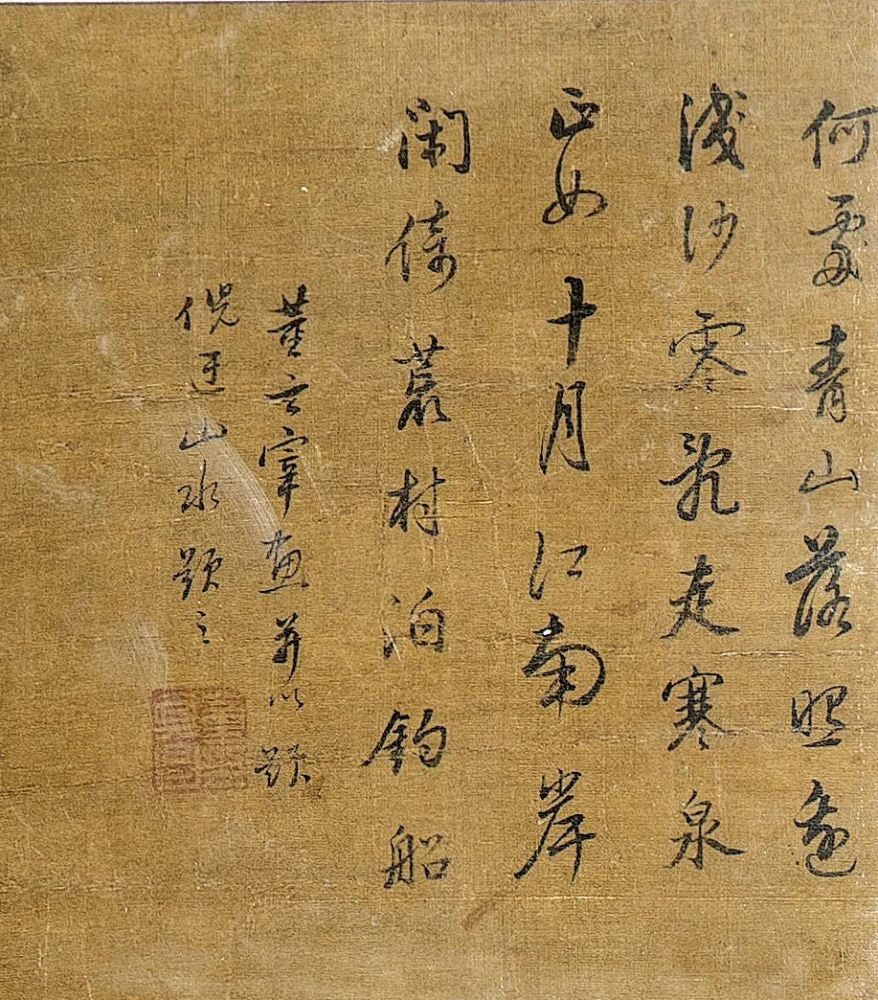 何處青山落照邊
淺沙零亂走寒泉
正如十月江南岸
閑倚荒村泊釣船
董玄宰畫并以題
倪迂山水題之